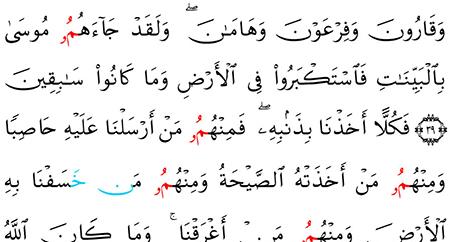 وَقَارُونَ وَفِرْعَوْنَ وَهَامَانَ ۖ وَلَقَدْ جَآءَهُمُۥ مُوسَىٰ
بِالْبَيِّنَـٰتِ فَاسْتَكْبَرُواْ فِى الْأَرْضِ وَمَا كَانُواْ سَـٰبِقِينَ
﴿٣٩﴾ فَكُلًّا أَخَذْنَا بِذَنۢبِهِۦ ۖ فَمِنْهُمُۥ مَنْ أَرْسَلْنَا عَلَيْهِ حَاصِبًا
وَمِنْهُمُۥ مَنْ أَخَذَتْهُ الصَّيْحَةُ وَمِنْهُمُۥ مَنْ خَسَفْنَا بِهِ
الْأَرْضَ وَمِنْهُمُۥ مَنْ أَغْرَقْنَا ۚ وَمَا كَانَ اللَّهُ